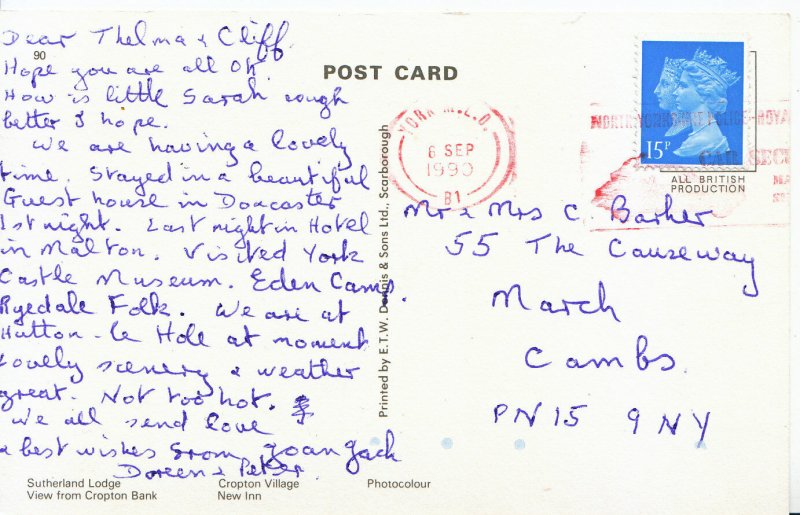 Dear Thelma & Cliff
90
Hope you are all OK.
How is little Sarah cough
better I hope.
We are having a lovely
time. Stayed in a beautiful
Guest house in Doncaster
1st night. Last night in Hotel
in Malton. Visited York
Castle Museum. Eden Camp.
Ryedale Folk. We are at
Hutton-le Hole at moment
Lovely scenery & weather
great. Not too hot.
We all send love
& best wishes from Joan Jack
Doreen & Peter.
Sutherland Lodge
View from Cropton Bank
Cropton Village
New Inn
Photocolour
POST CARD
Printed by E.T.W. Dennis & Sons Ltd., Scarborough
YORK M.L.O.
6 SEP
1990
B1
NORTH YORKSHIRE POLICE ROYA
CAR SEC
15P
ALL BRITISH
PRODUCTION
Mr & Mrs C. Barker
55 The Causeway
March
Cambs
PN15 9NY